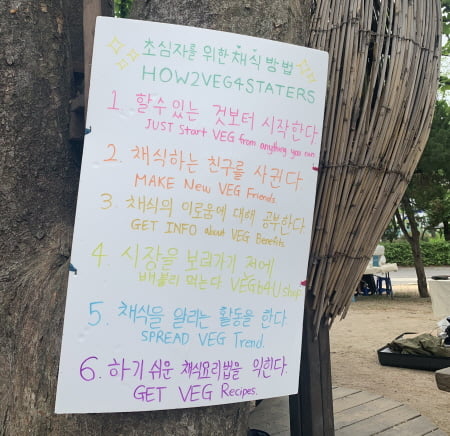 초심자를 위한 채식 방법
HOW2VEG4STATERS
1. 할 수 있는 것보터 시작한다
JUST Start VEG from anything you can
2. 채식하는 친구를 사귄다.
MAKE New VEG Friends.
3. 채식의 이로움에 대해 공부한다.
GET INFO about VEG Benefits.
4. 시장을 보러가기 전에
배불리 먹는다. VEGb4U shop
5. 채식을 알리는 활동을 한다.
SPREAD VEG Trend.
6. 하기 쉬운 채식요리법을 익힌다.
GET VEG Recipes.